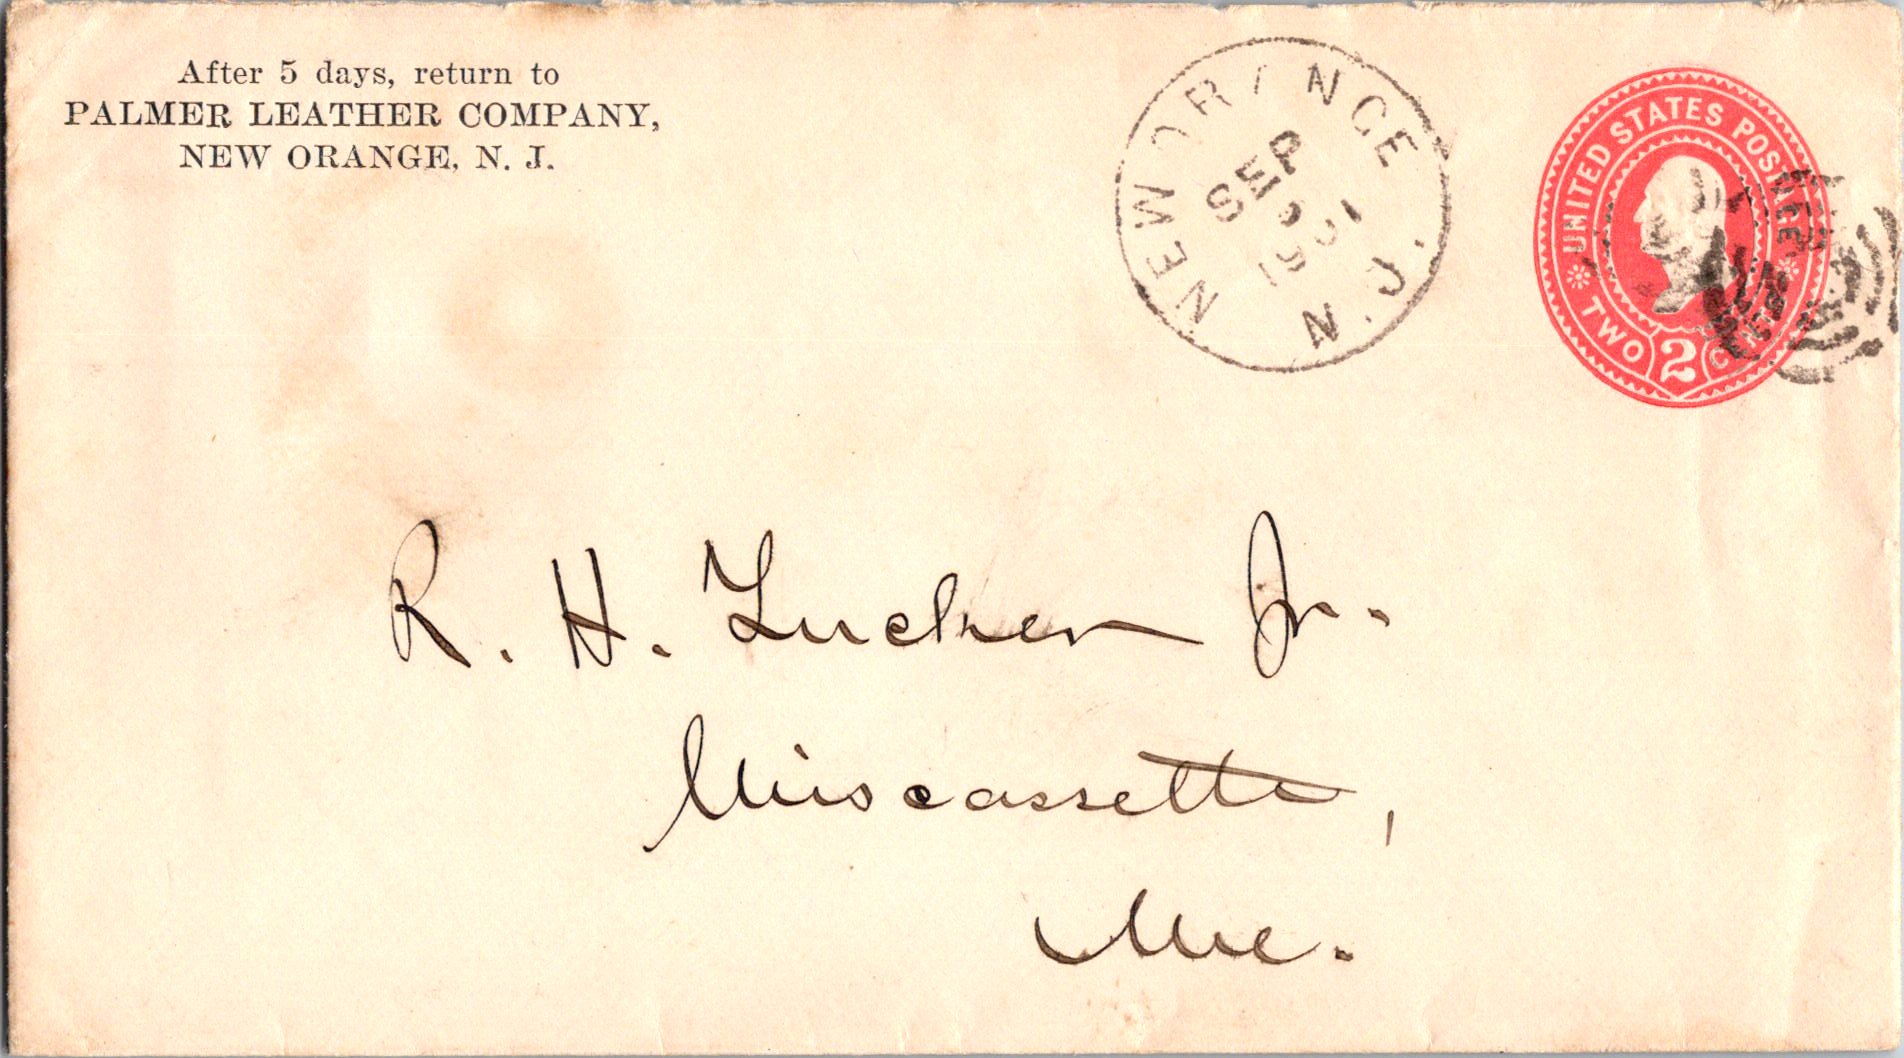 After 5 days, return to
PALMER LEATHER COMPANY,
NEW ORANGE, N. J.
NEW ORANGE
SEP
9
1901
N.J.
UNITED STATES POSTAGE
TWO 2 CENTS
R. H. Tucker Jr.
Wiscassette,
Me.